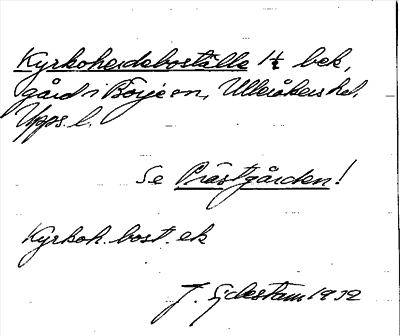 Kyrkoherdeboställe 1½ bek,
gård i Börje sn, Ulleråkers hd.
Upps. l.
Se Prästgården!
Kyrkoh. bost. ek
J. Sjdestam 1932